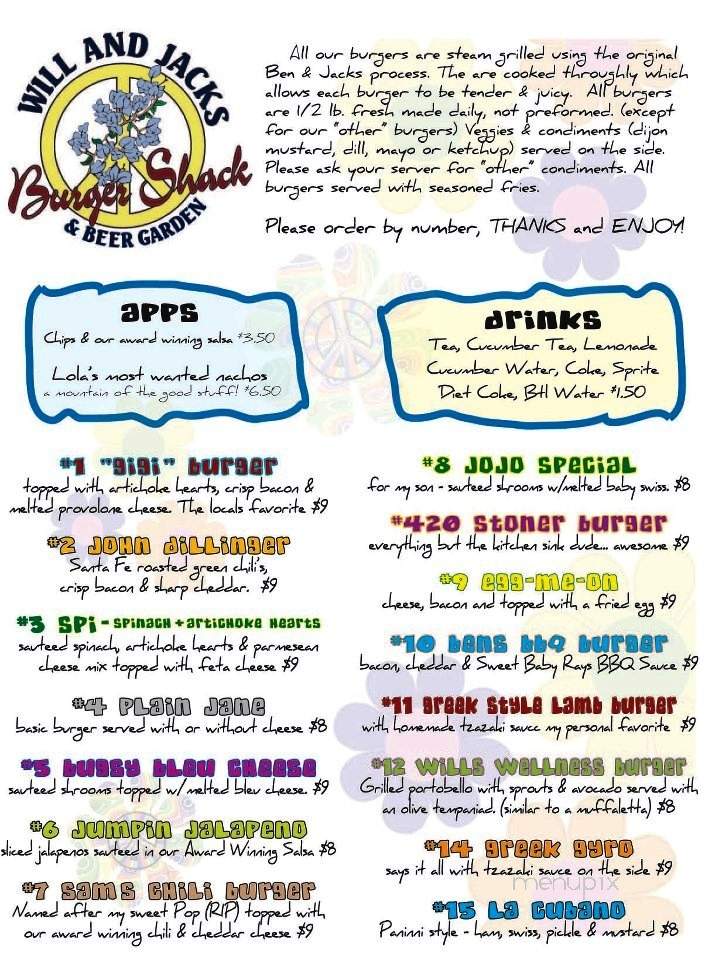 WILL AND JACKS
Burger Shack
& BEER GARDEN
All our burgers are steam grilled using the original
Ben & Jacks process. The are cooked throughly which
allows each burger to be tender & juicy. All burgers
are 1/2 lb. fresh made daily, not preformed. (except
for our "other" burgers) Veggies & condiments (dijon
mustard, dill, mayo or ketchup) served on the side.
Please ask your server for "other" condiments. All
burgers served with seasoned fries.
Please order by number, THANKS and ENJOY!
apps
Chips & our award winning salsa $3.50
Lola's most wanted nachos
a mountain of the good stuff! $6.50
drinks
Tea, Cucumber Tea, Lemonade
Cucumber Water, Coke, Sprite
Diet Coke, Btl Water $1.50
#1 "gigi" burger
topped with artichoke hearts, crisp bacon &
melted provolone cheese. The locals favorite $9
#2 John dillinger
Santa Fe roasted green chili's,
crisp bacon & sharp cheddar. $9
#3 SPi - spinach + artichoke hearts
sauteed spinach, artichoke hearts & parmesean
cheese mix topped with feta cheese $9
#4 Plain Jane
basic burger served with or without cheese $8
#5 bugsy bleu cheese
sauteed shrooms topped w/melted bleu cheese. $9
#6 Jumpin Jalapeno
sliced jalapenos sauteed in our Award Winning Salsa $8
#7 Sams Chili burger
Named after my sweet Pop (RIP) topped with
our award winning chili & cheddar cheese $9
#8 JoJo Special
for my son - sauteed shrooms w/melted baby swiss. $8
#420 Stoner burger
everything but the kitchen sink dude... awesome $9
#9 egg-me-on
cheese, bacon and topped with a fried egg $9
#10 bens bbq burger
bacon, cheddar & Sweet Baby Rays BBQ Sauce $9
#11 greek style lamb burger
with homemade tzazaki sauce my personal favorite $9
#12 Wills Wellness burger
Grilled portobello with sprouts & avocado served with
an olive tempaniad. (similar to a muffaletta) $8
#14 greek gyro
says it all with tzazaki sauce on the side $9
menupix
#15 La Cubano
Panini style - ham, swiss, pickle & mustard $8